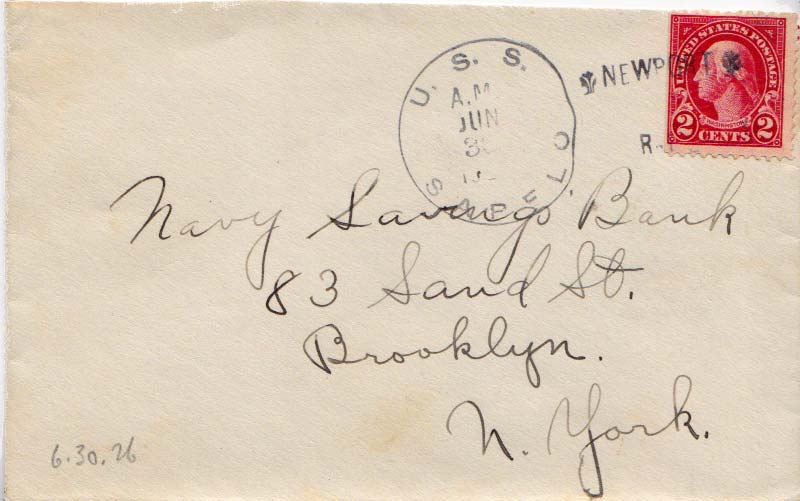 U. S. S.
A.M.
JUN
30
NEWPORT
R.
UNITED STATES POSTAGE
WASHINGTON
2 CENTS 2
Navy Savings Bank
83 Sand St.
Brooklyn.
N. York.
6.30.26